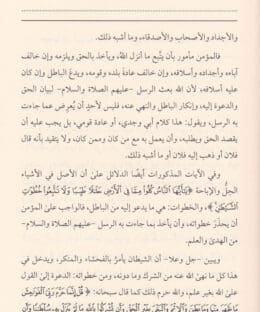 والأجداد والأصحاب والأصدقاء، وما أشبه ذلك.
فالمؤمن مأمور بأن يتَّبع ما أنزل اللهُ، ويأخذ بالحق ويلزمه وإن خالف
آباءه وأجداده وأسلافه، وإن خالف عادةَ بلده وقومه، ويدعَ الباطل وإن كان
عليه أسلافه، لأن الله بعث الرسل -عليهم الصلاة والسلام- لبيان الحق
والدعوة إليه، وإنكار الباطل والنهي عنه، فليس لأحدٍ أن يُعرِض عما جاءت
به الرسل، ويقول: هذا كلام أبي وجدي، أو عادة قومي، بل يجب عليه أن
يقصد الحق ويطلبه، وأن يعمل به مع من كان وممن كان، ولا يتقيد بأنه قال
فلان أو ذهب إليه فلان أو ما أشبه ذلك.
وفي الآيات المذكورات أيضًا الدلائل على أن الأصل في الأشياء
الحلُّ والإباحة ﴿يَٰٓأَيُّهَا ٱلنَّاسُ كُلُوا۟ مِمَّا فِى ٱلْأَرْضِ حَلَٰلًا طَيِّبًا وَلَا تَتَّبِعُوا۟ خُطُوَٰتِ
ٱلشَّيْطَٰنِ﴾، والخطوات: هي ما يدعو إليه من الباطل، فالواجب على المؤمن
أن يحذَر خطواته، وأن يأخذ بما جاءت به الرسل -عليهم الصلاة والسلام-
من الهدى والعلم.
ويبين -جل وعلا- أن الشيطان يأمرُ بالفحشاء والمنكر، ويدخل في
هذا كل ما نهى الله عنه من الشرك وما دونه، ومن خطواته: الدعوة إلى القول
على الله بغير علم، والله حرم ذلك كما قال سبحانه: ﴿قُلْ إِنَّمَا حَرَّمَ رَبِّىَ ٱلْفَوَٰحِشَ
مَا ظَهَرَ مِنْهَا وَمَا بَطَنَ وَٱلْإِثْمَ وَٱلْبَغْىَ بِغَيْرِ ٱلْحَقِّ وَأَن تُشْرِكُوا۟ بِٱللَّهِ مَا لَمْ يُنَزِّلْ بِهِۦ سُلْطَٰنًا وَأَن